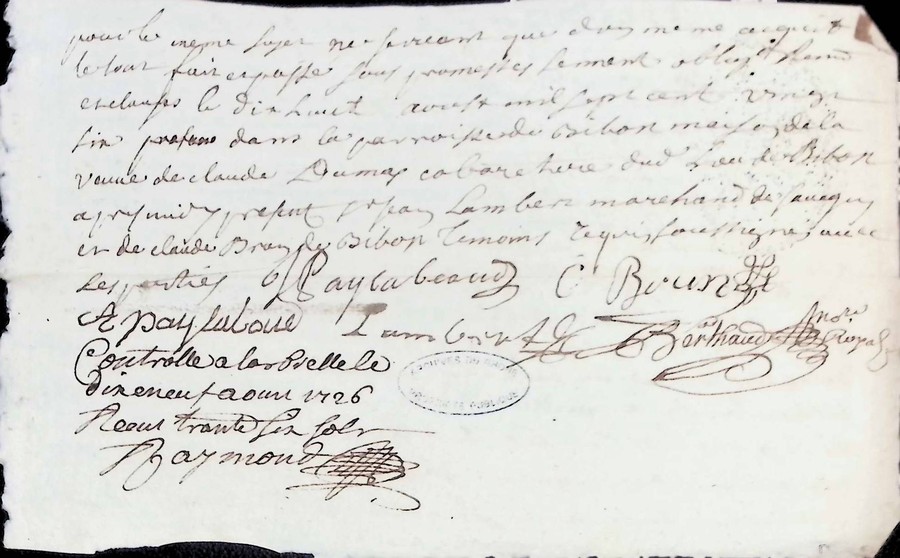 pour le meme sujet ne servant que dun meme acquit
le tout fait et passé sous promesses serment oblign
et clauses le dix huit aoust mil sept cent vingt
six dans la parroisse de Bibon maison de la
veuve de claude Dumas cabaretiere dud. lieu de Bibon
apres midy present sr Jean Lambert marchand de
et de claude Brun de Bibon temoins requis soussignes avec
les parties Paylabeaud C Brun
A paylabaud Lambert Berthaud
Controlle a la le
dixeneuf aoust 1726
Receu trante six sols
Raymond
ARCHIVES DU